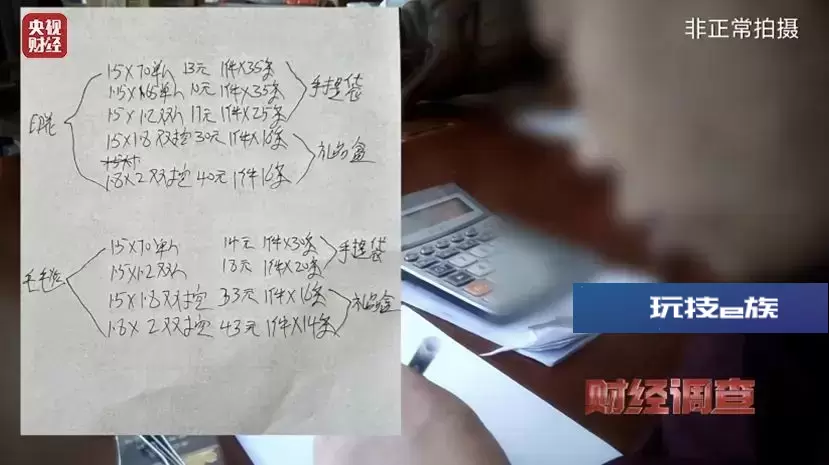 央视
财经
非正常拍摄
1.5×70单人 13元 1件×35条
1.15×1.65单人 10元 1件×35条
1.5×1.2双人 17元 1件×25条
手提袋
印花
1.5×1.8双控 30元 1件×18条
1.8×2双控 40元 1件16条
礼品盒
1.5×70单人 14元 1件×30条
1.5×1.2双人 18元 1件×20条
手提袋
1.5×1.8双控 33元 1件×16条
1.8×2双控 43元 1件×14条
礼品盒
玩技e族
财经调查